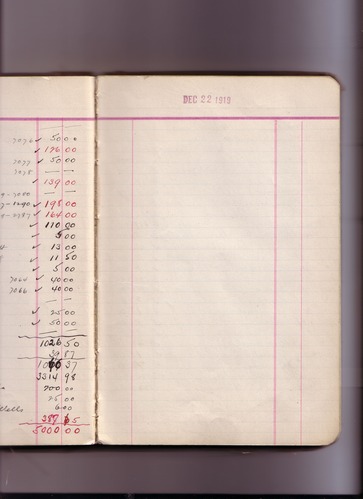 DEC 22 1919
7076 ✓ 50 00
✓ 176 00
7077 ✓ 50 00
7078 — —
✓ 139 00
— —
✓ 198 00
✓ 164 00
✓ 170 00
✓ 5 00
✓ 13 00
✓ 11 50
✓ 5 00
7064 ✓ 40 00
7066 ✓ 40 00
— —
✓ 25 00
✓ 50 00
— —
1026 50
39 87
37
3314 98
200 00
25 00
6 00
387 65
5000 00